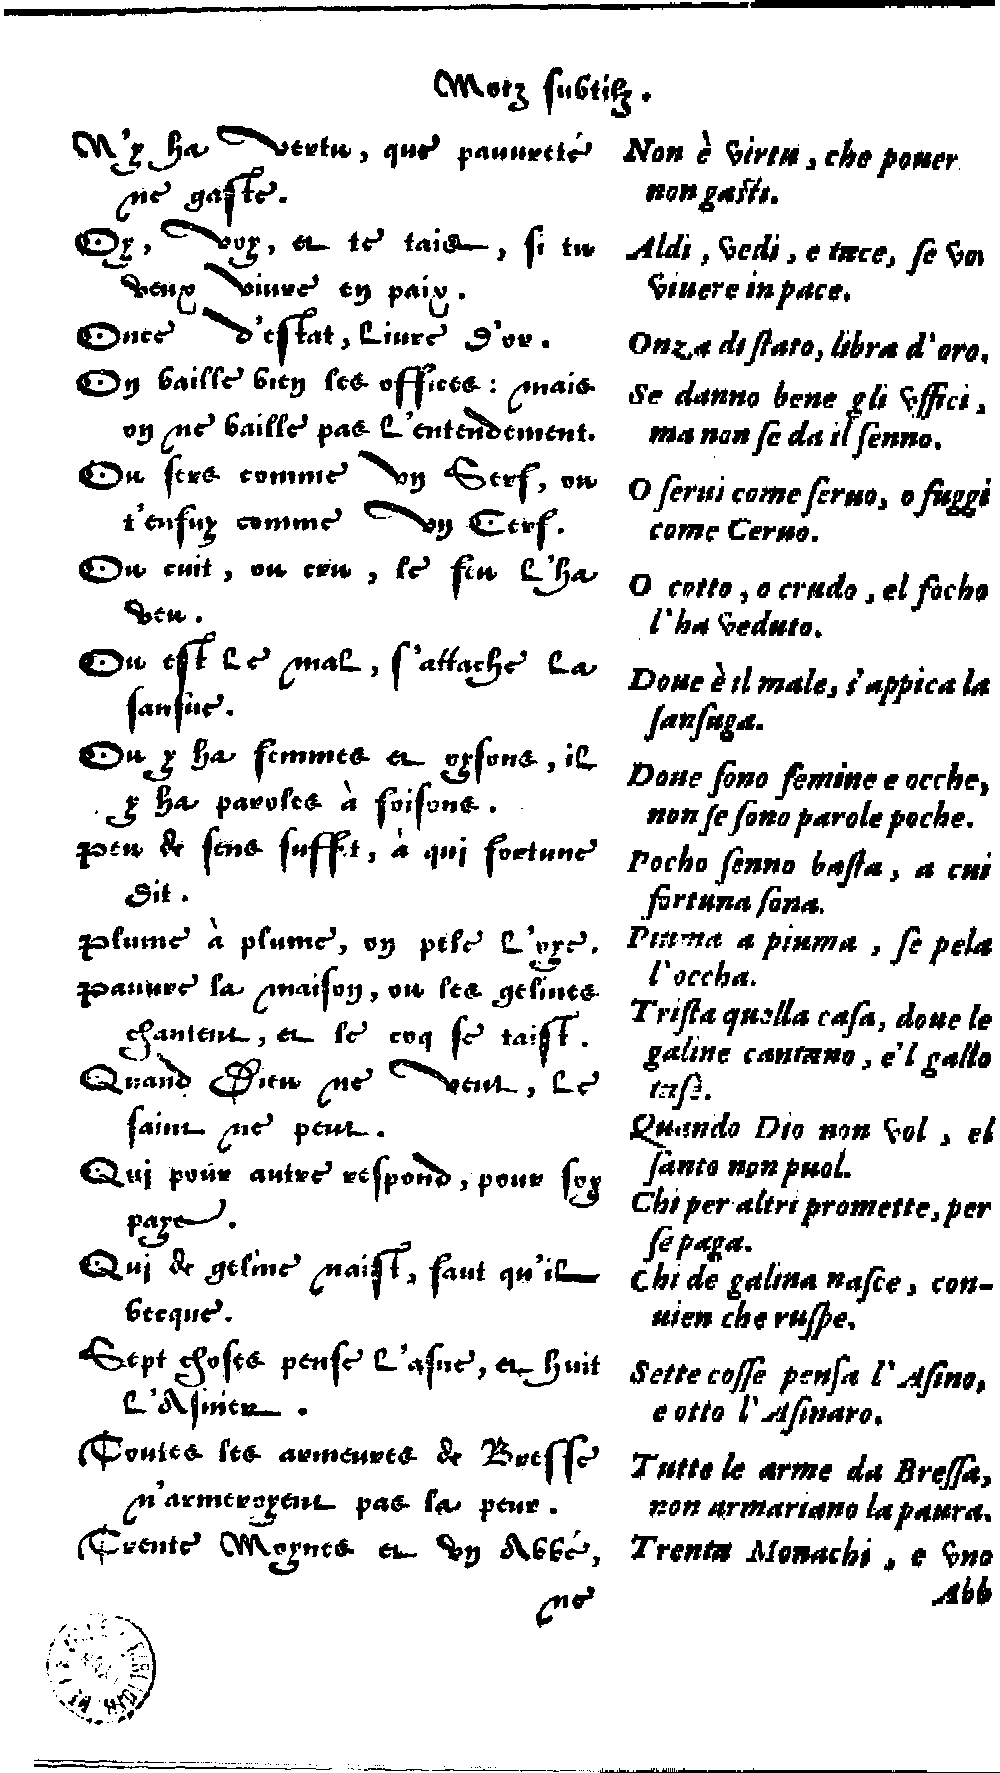 Motz subtilz.
N'y ha vertu, que pauureté
ne gaste.
Oy, voy, et te tais, si tu
veux viure en paix.
Once d'estat, liure d'or.
On baille bien les offices: mais
on ne baille pas l'entendement.
Ou sers comme vn Serf, ou
t'enfuy comme vn Cerf.
Ou cuit, ou cru, le feu l'ha
veu.
Ou est le mal, s'attache la
sansue.
Ou y ha femmes et oysons, il
y ha paroles à foisons.
Peu de sens suffit, à qui fortune
dit.
Plume à plume, on pele l'oye.
Pauure la maison, ou les gelines
chantent, et le coq se taist.
Quand Dieu ne veut, le
saint ne peut.
Qui pour autre respond, pour soy
paye.
Qui de geline naist, faut qu'il
becque.
Sept choses pense l'asne, et huit
l'Asnier.
Toutes les armeures de Bresse
n'armeroyent pas la peur.
Trente Moynes et vn Abbé,
ne
Non è virtu, che pouer
non gasti.
Aldi, vedi, e tace, se voi
viuere in pace.
Onza di stato, libra d'oro.
Se danno bene gli vffici,
ma non se da il senno.
O serui come seruo, o fuggi
come Ceruo.
O cotto, o crudo, el focho
l'ha veduto.
Doue è il male, s'appica la
sansuga.
Doue sono femine e ocche,
non se sono parole poche.
Pocho senno basta, a cui
fortuna sona.
Piuma a piuma, se pela
l'occha.
Trista quella casa, doue le
galine cantano, e'l gallo
tase.
Quando Dio non vol, el
santo non puol.
Chi per altri promette, per
se paga.
Chi de galina nasce, con-
uien che ruspe.
Sette cosse pensa l'Asino,
e otto l'Asinaro.
Tutte le arme da Bressa,
non armariano la paura.
Trenta Monachi, e vno
Abb